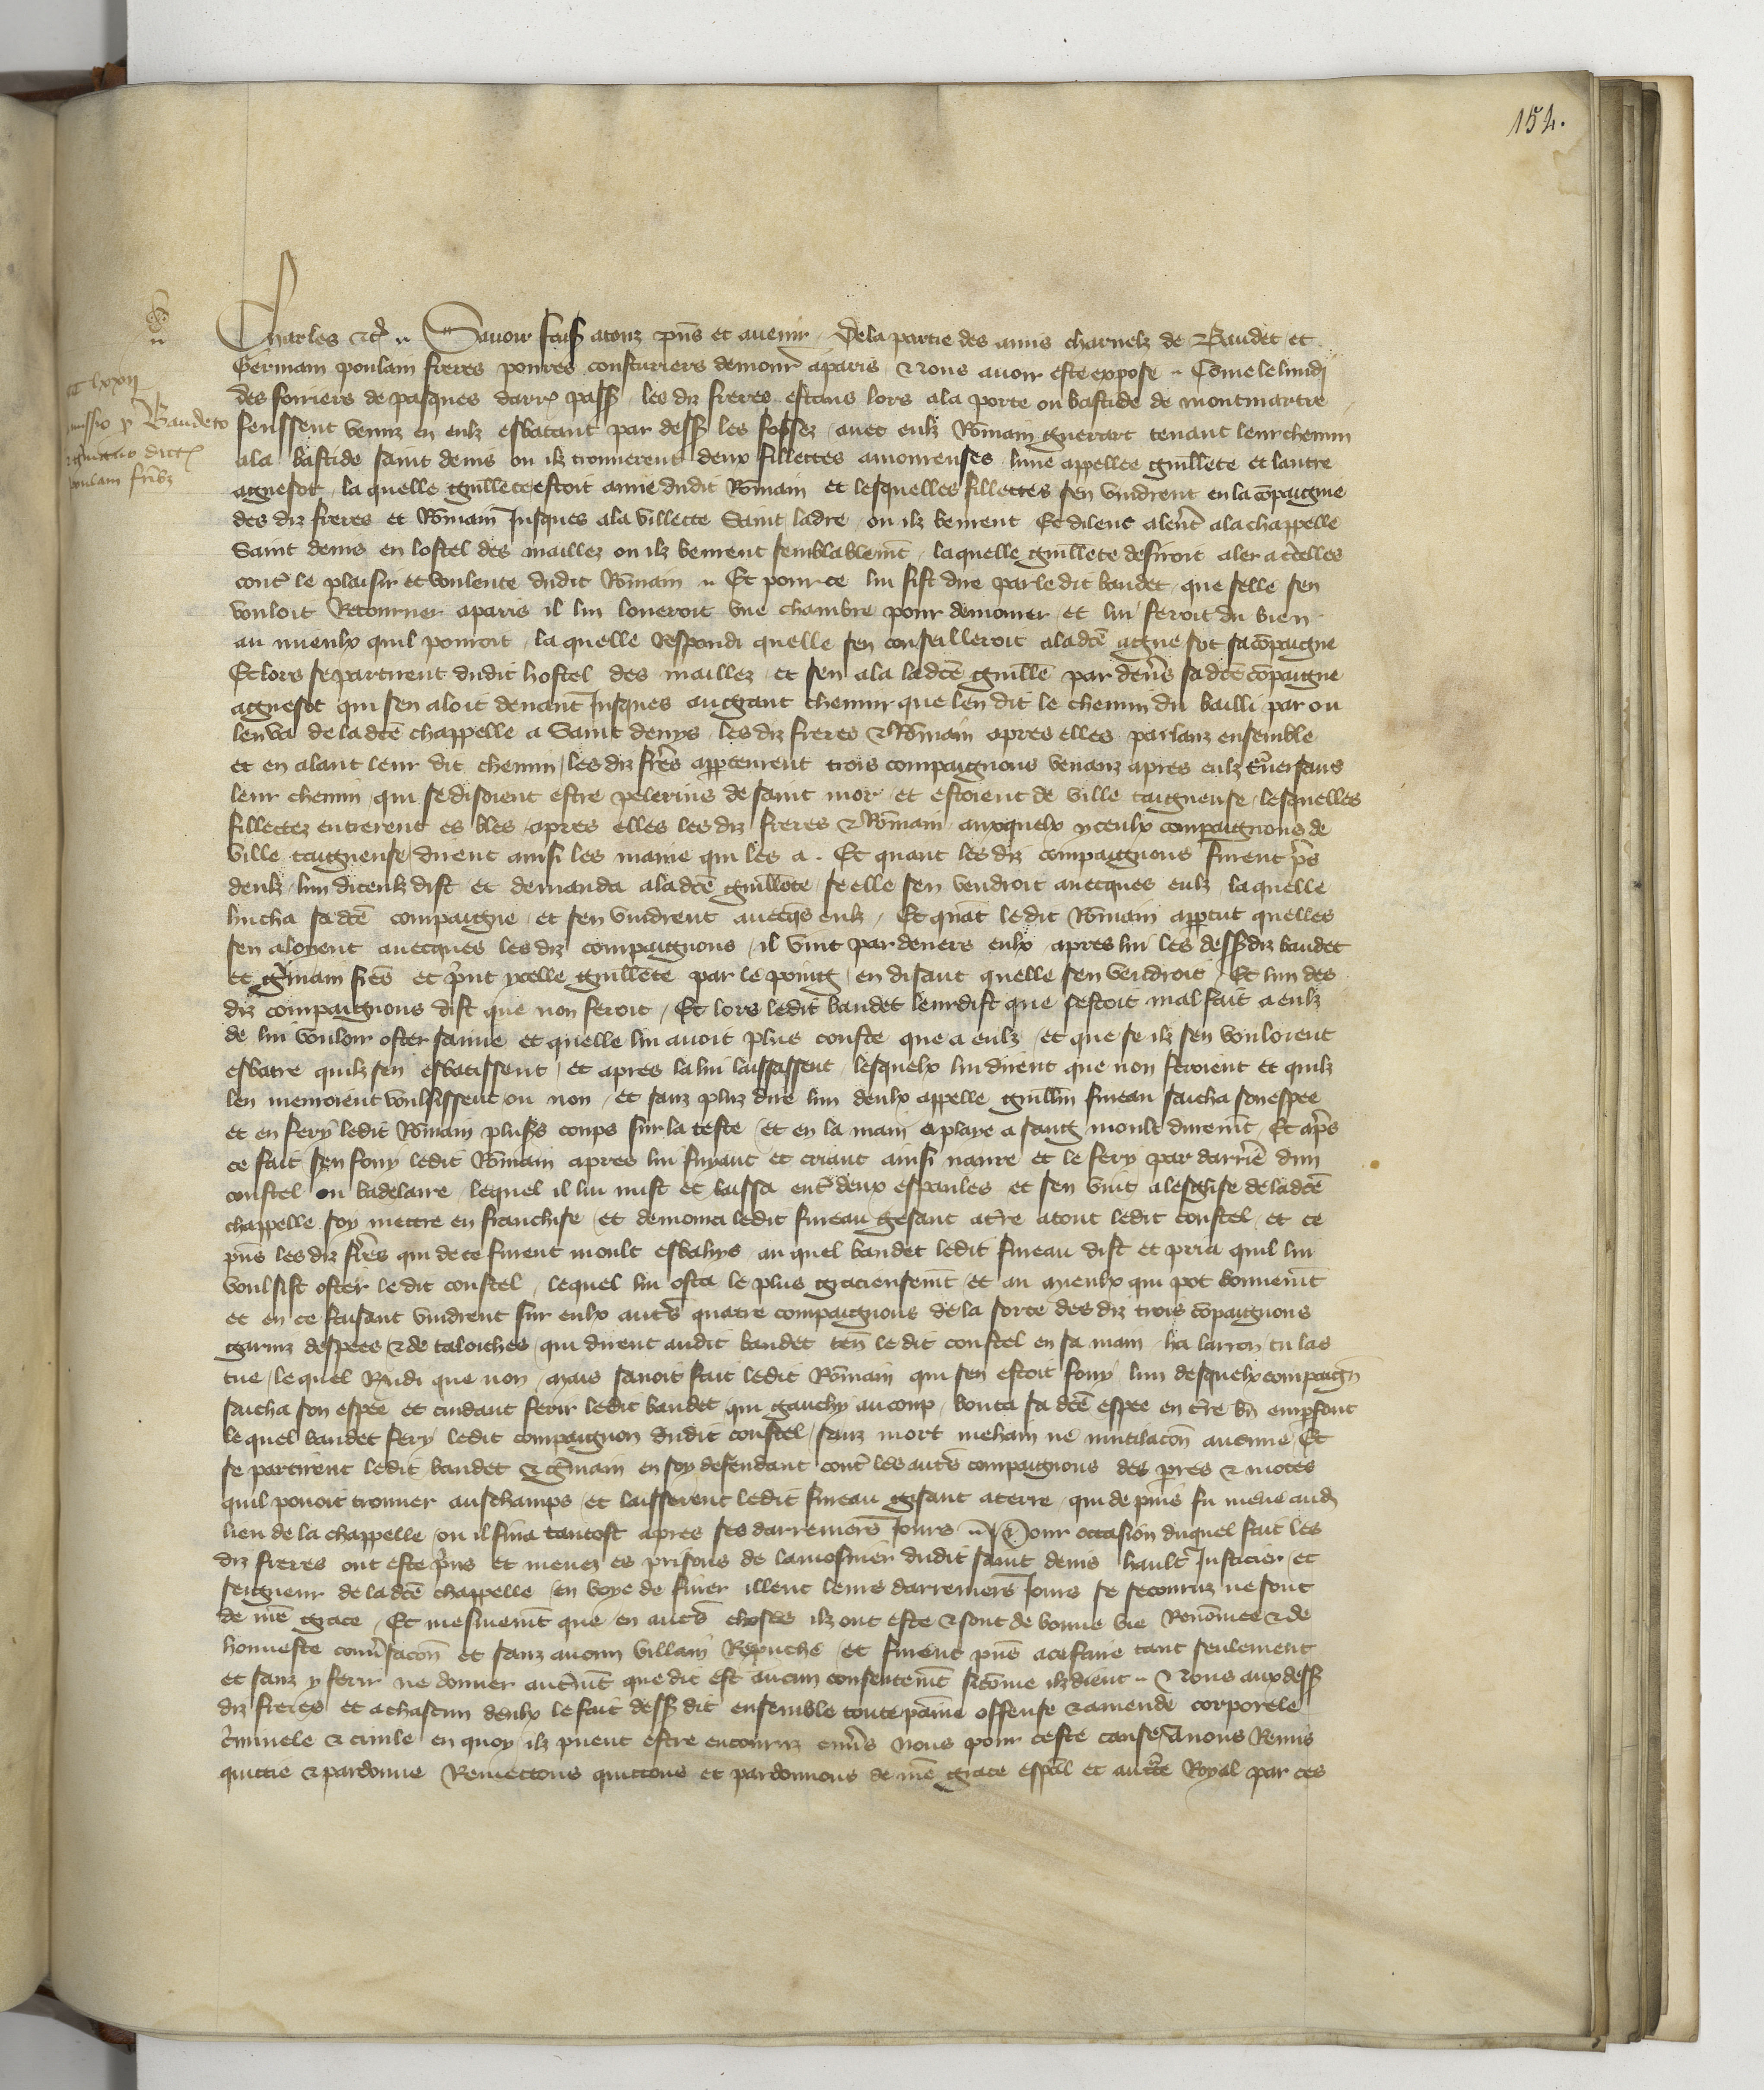 154.
Charles etc. Savoir faiss atouz pns et avenir De la partie des amis charnelz de Baudet et
Germain poulain freres povres cousturiers demour aparis Nous avoir este expose Come le lundi
des foiriers de pasques darr pass les diz freres estans lors ala porte ou bastide de montmartre
feussent venuz en eulz esbatant par dess les fossez avec eulz Romain guerart tenant leur chemin
ala bastide saint denis ou ilz trouverent deux fillettes amoureuses lune appellee guillete et lautre
agnesot la quelle guillete estoit amie dudit Romain et lesquelles fillettes sen vindrent en la compaignie
des diz freres et Romain Jusques ala villette Saint ladre ou ilz beurent Et dilenc alert ala chappelle
Saint denis en lostel des maillez ou ilz beurent semblablemt laquelle guillete desiroit aler
cont le plaisir et voulente dudit Romain Et pour ce lui fist dire par le dit baudet que selle sen
vouloit Retourner aparis il lui loueroit une chambre pour demourer et lui feroit du bien
au mieulx quil pourroit la quelle Respondi quelle sen conseilleroit aladce agnesot sa compaigne
Et lors se partirent dudit hostel des maillez et sen ala ladce guille par devs sadce compaigne
agnesot qui sen aloit devant Jusques au grant chemin que len dit le chemin du bailli par ou
len va de ladce chappelle a Saint denys les diz freres & Romain apres elles parlanz ensemble
et en alant leur dit chemin les diz freres appceurent trois compaignons venanz apres eulz
leur chemin qui se disoient estre pelerins de saint mor et estoient de ville taigneuse lesquelles
fillettes entrerent es bles apres elles les diz freres & Romain auxquelx yceulx compaignons de
ville taigneuse dirent ainsi les maine qui les a Et quant les diz compaignons furent pres
deulz lun diceulz dist et demanda aladce guillete se elle sen vendroit avecques eulz laquelle
hucha sadce compaigne et sen vindrent avecqs eulz Et quat le dit Romain appceut quelles
sen aloyent avecques les diz compaignons il vint par devers eulx apres lui les dess diz baudet
et gmain fres et print ycelle guillete par le poing en disant quelle sen vendroit Et lun des
diz compaignons dist que non feroit Et lors ledit baudet leur dist que sestoit mal fait a eulz
de lui vouloir oster samie et quelle lui avoit plus couste que a eulz et que se ilz sen vouloient
esbatre quilz sen esbatissent et apres la lui laissassent lesquelx lui dirent que non feroient et quilz
len menroient voulsissent ou non et sanz pluz dire lun deulx appelle guillin fineau saicha son espee
et en fery ledit Romain pluss coups sur la teste et en la main a playe a sang moult duremt Et aps
ce fait sen fouy ledit Romain apres lui fuyant et criant ainsi navre et le fery par darrie dun
coustel ou badelaire lequel il lui mist et laissa ent deux espaules et sen vint a lesglise de ladce
chappelle soy mettre en franchise et demoura ledit fineau gesant atre atout ledit coustel et ce
pns les diz freres qui de ce furent moult esbahys au quel baudet ledit fineau dist et pria quil lui
voulsist oster le dit coustel lequel lui osta le plus gracieusemt et au mieulx qui pot bonnemt
et en ce faisant vindrent sur eulx auts quatre compaignons de la sorte des diz trois compaignons
garniz despees & de taloiches qui dirent audit baudet ten le dit coustel en sa main ha larron tu las
tue lequel Rndi que non mais lavoit fait ledit Romain qui sen estoit fouy lun desquelx compaign
saicha son espee et cuidant ferir ledit baudet qui gauchy au coup bouta sa dce espee en tre bn empfont
lequel baudet fery ledit compaignon dudit coustel sanz mort mehain ne mutilacon aucune Et
se partirent ledit baudet & gmain en soy defendant cont les auts compaignons des pierres & motes
quil povoit trouver aus champs et laisserent ledit fineau gisant a terre qui depuis fu mene aud
lieu de la chappelle ou il fina tantost apres ses darreniers Jours Pour occasion duquel fait les
diz freres ont este prins et menez es prisons de lamosnier dudit saint denis hault Justicier et
seigneur de ladce chappelle en voye de finer illeuc leurs darreniers Jours se secouruz ne sont
de nre grace Et mesmemt que en auts choses ilz ont este & sont de bonne vie Renomee & de
honneste convsacon et sanz aucun villain Reprouche et furent pns a ce faire tant seulement
et sanz y ferir ne donner autmt que dit est aucun consentemt sicome ilz dient Nous aux dess
diz freres et a chascun deulx le fait dess dit ensemble toute paine offense & amende corporele
criminele & civile en quoy ilz puent estre encouruz envs nous pour ceste cause Avons Remis
quittie & pardonne Remettons quittons et pardonnons de nre grace espal et auctte Royal par ces
lxxij
missio p Baudeto
& gmano dictis
poulain fribz